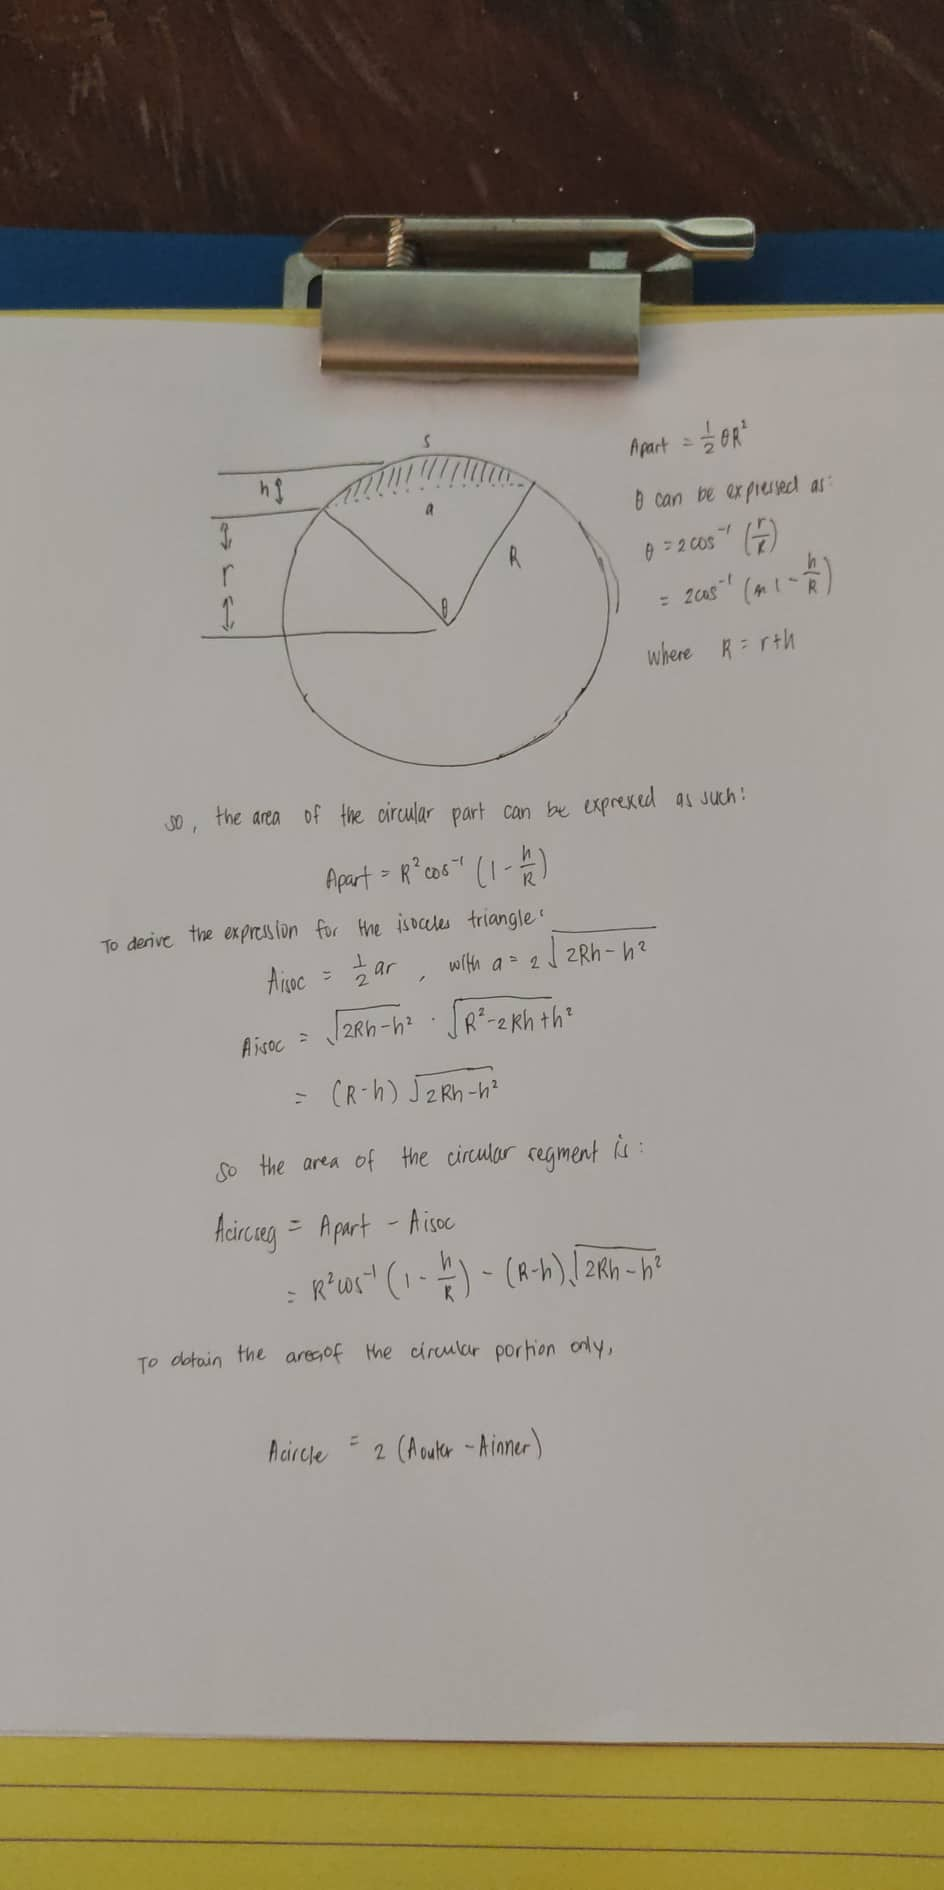 s
h
a
r
R
θ
Apart = 1/2 θR²
θ can be expressed as:
θ = 2cos⁻¹ (r/R)
= 2cos⁻¹ (1 - h/R)
where R = r+h
so, the area of the circular part can be expressed as such:
Apart = R² cos⁻¹ (1 - h/R)
To derive the expression for the isoceles triangle:
Aisoc = 1/2 ar , with a = 2√(2Rh - h²)
Aisoc = √(2Rh - h²) · √(R² - 2Rh + h²)
= (R-h) √(2Rh - h²)
so the area of the circular segment is:
Acircseg = Apart - Aisoc
= R² cos⁻¹ (1 - h/R) - (R-h)√(2Rh - h²)
To obtain the area of the circular portion only,
Acircle = 2 (Aouter - Ainner)